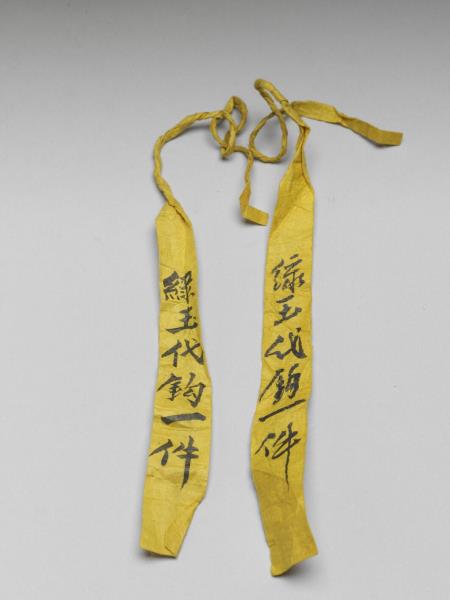 綠玉代鈎一件
綠玉代鈎一件